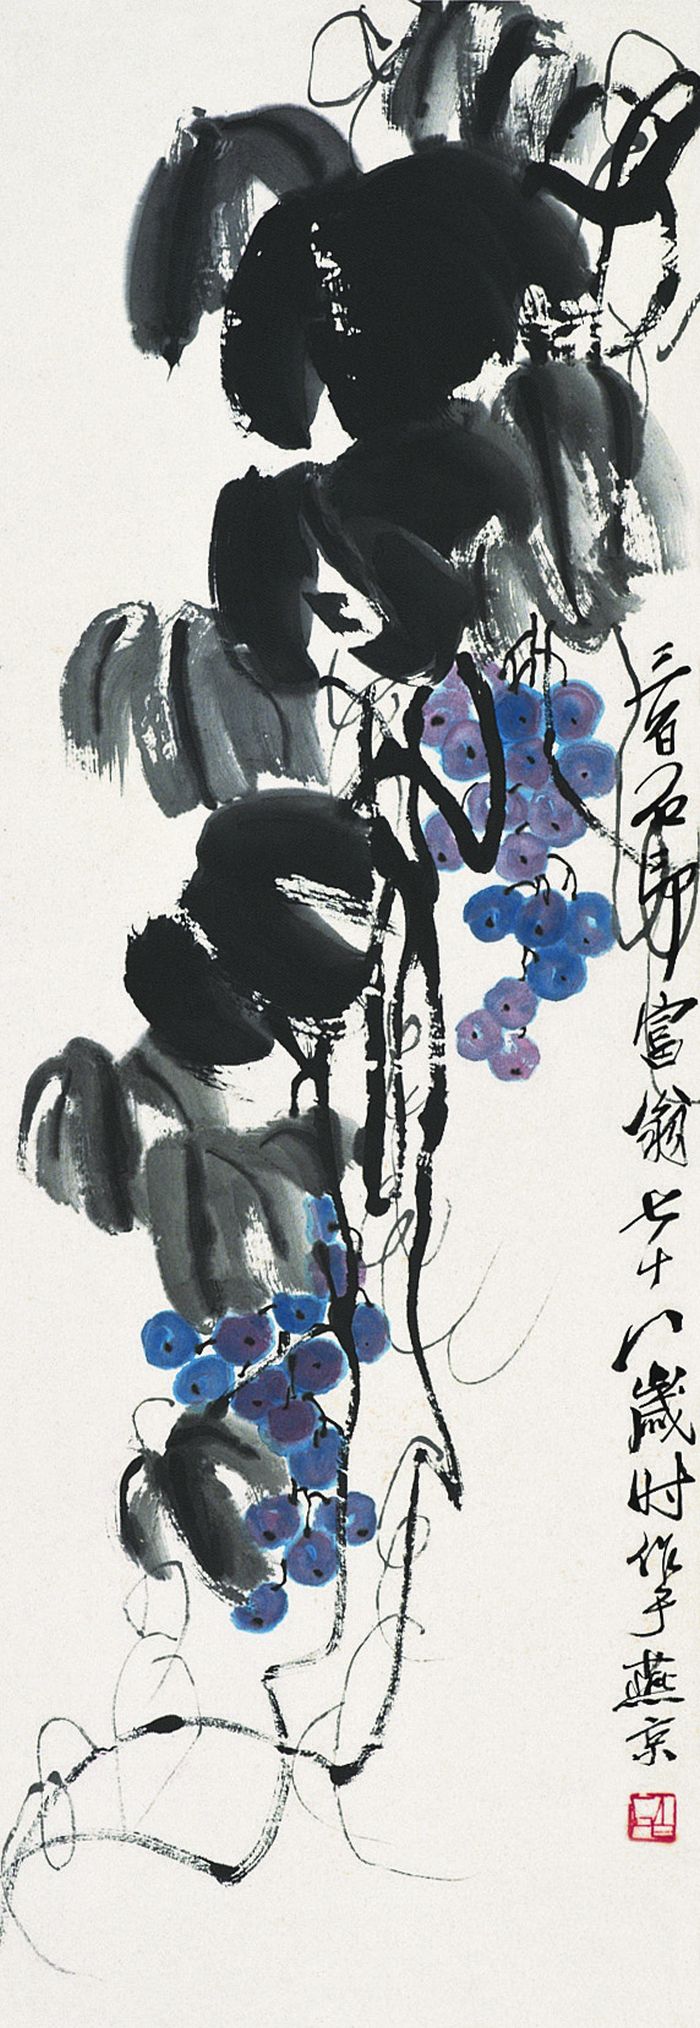 三百石印富翁七十八歲时作于燕京